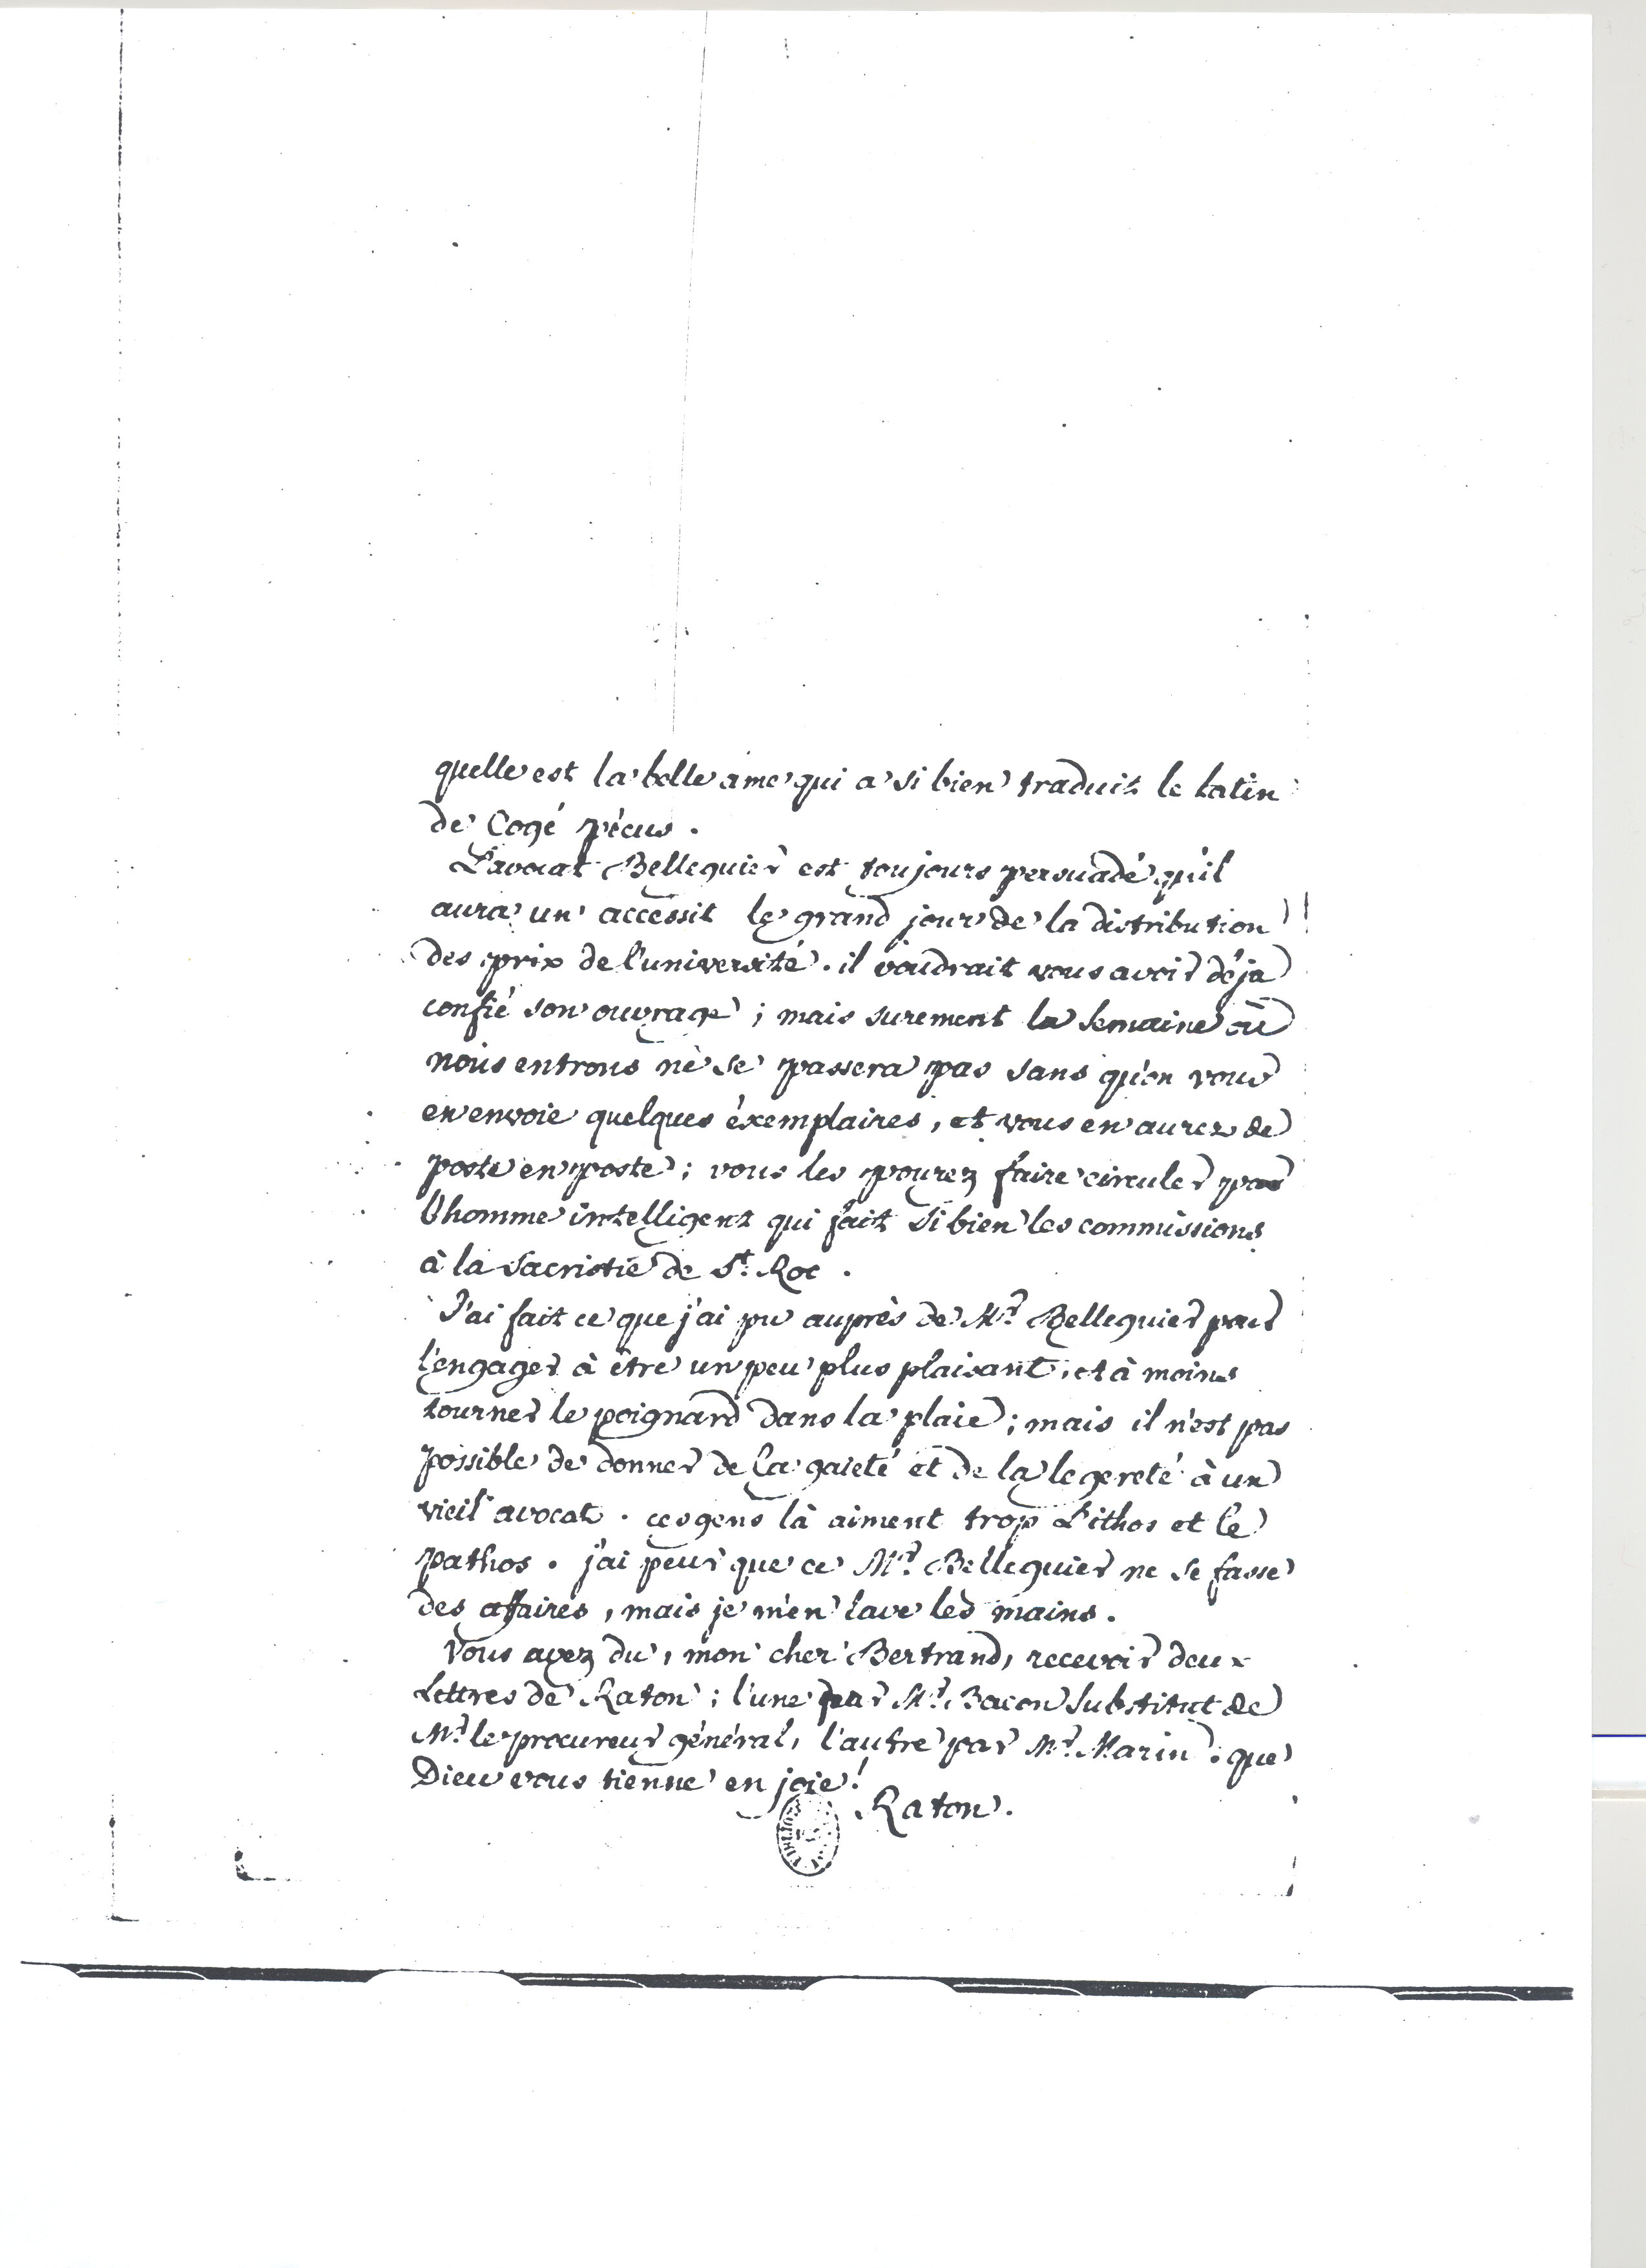 quelle est la belle ame qui a si bien traduit le latin
de Cogé pécus.
L'avocat Belleguier est toujours persuadé qu'il
aura un accessit le grand jour de la distribution
des prix de l'université. il voudrait vous avoir déja
confié son ouvrage; mais surement la semaine où
nous entrons ne se passera pas sans qu'on vous
en envoie quelques éxemplaires, et vous en aurez de
poste en poste; vous les pourez faire circuler par
l'homme intelligent qui fait si bien les commissions
à la sacristie de St. Roc.
J'ai fait ce que j'ai pu auprès de Mr. Belleguier pour
l'engager à être un peu plus plaisant, et à moins
tourner le poignard dans la plaie; mais il n'est pas
possible de donner de la gaieté et de la legereté à un
vieil avocat. ces gens là aiment trop L'ithos et le
pathos. j'ai peur que ce Mr. Belleguier ne se fasse
des affaires, mais je m'en lave les mains.
Vous avez du, mon cher Bertrand, recevoir deux
Lettres de Raton; l'une par Mr. Bacon substitut de
Mr. le procureur général, l'autre par Mr. Marin. que
Dieu vous tienne en joie!
Raton.